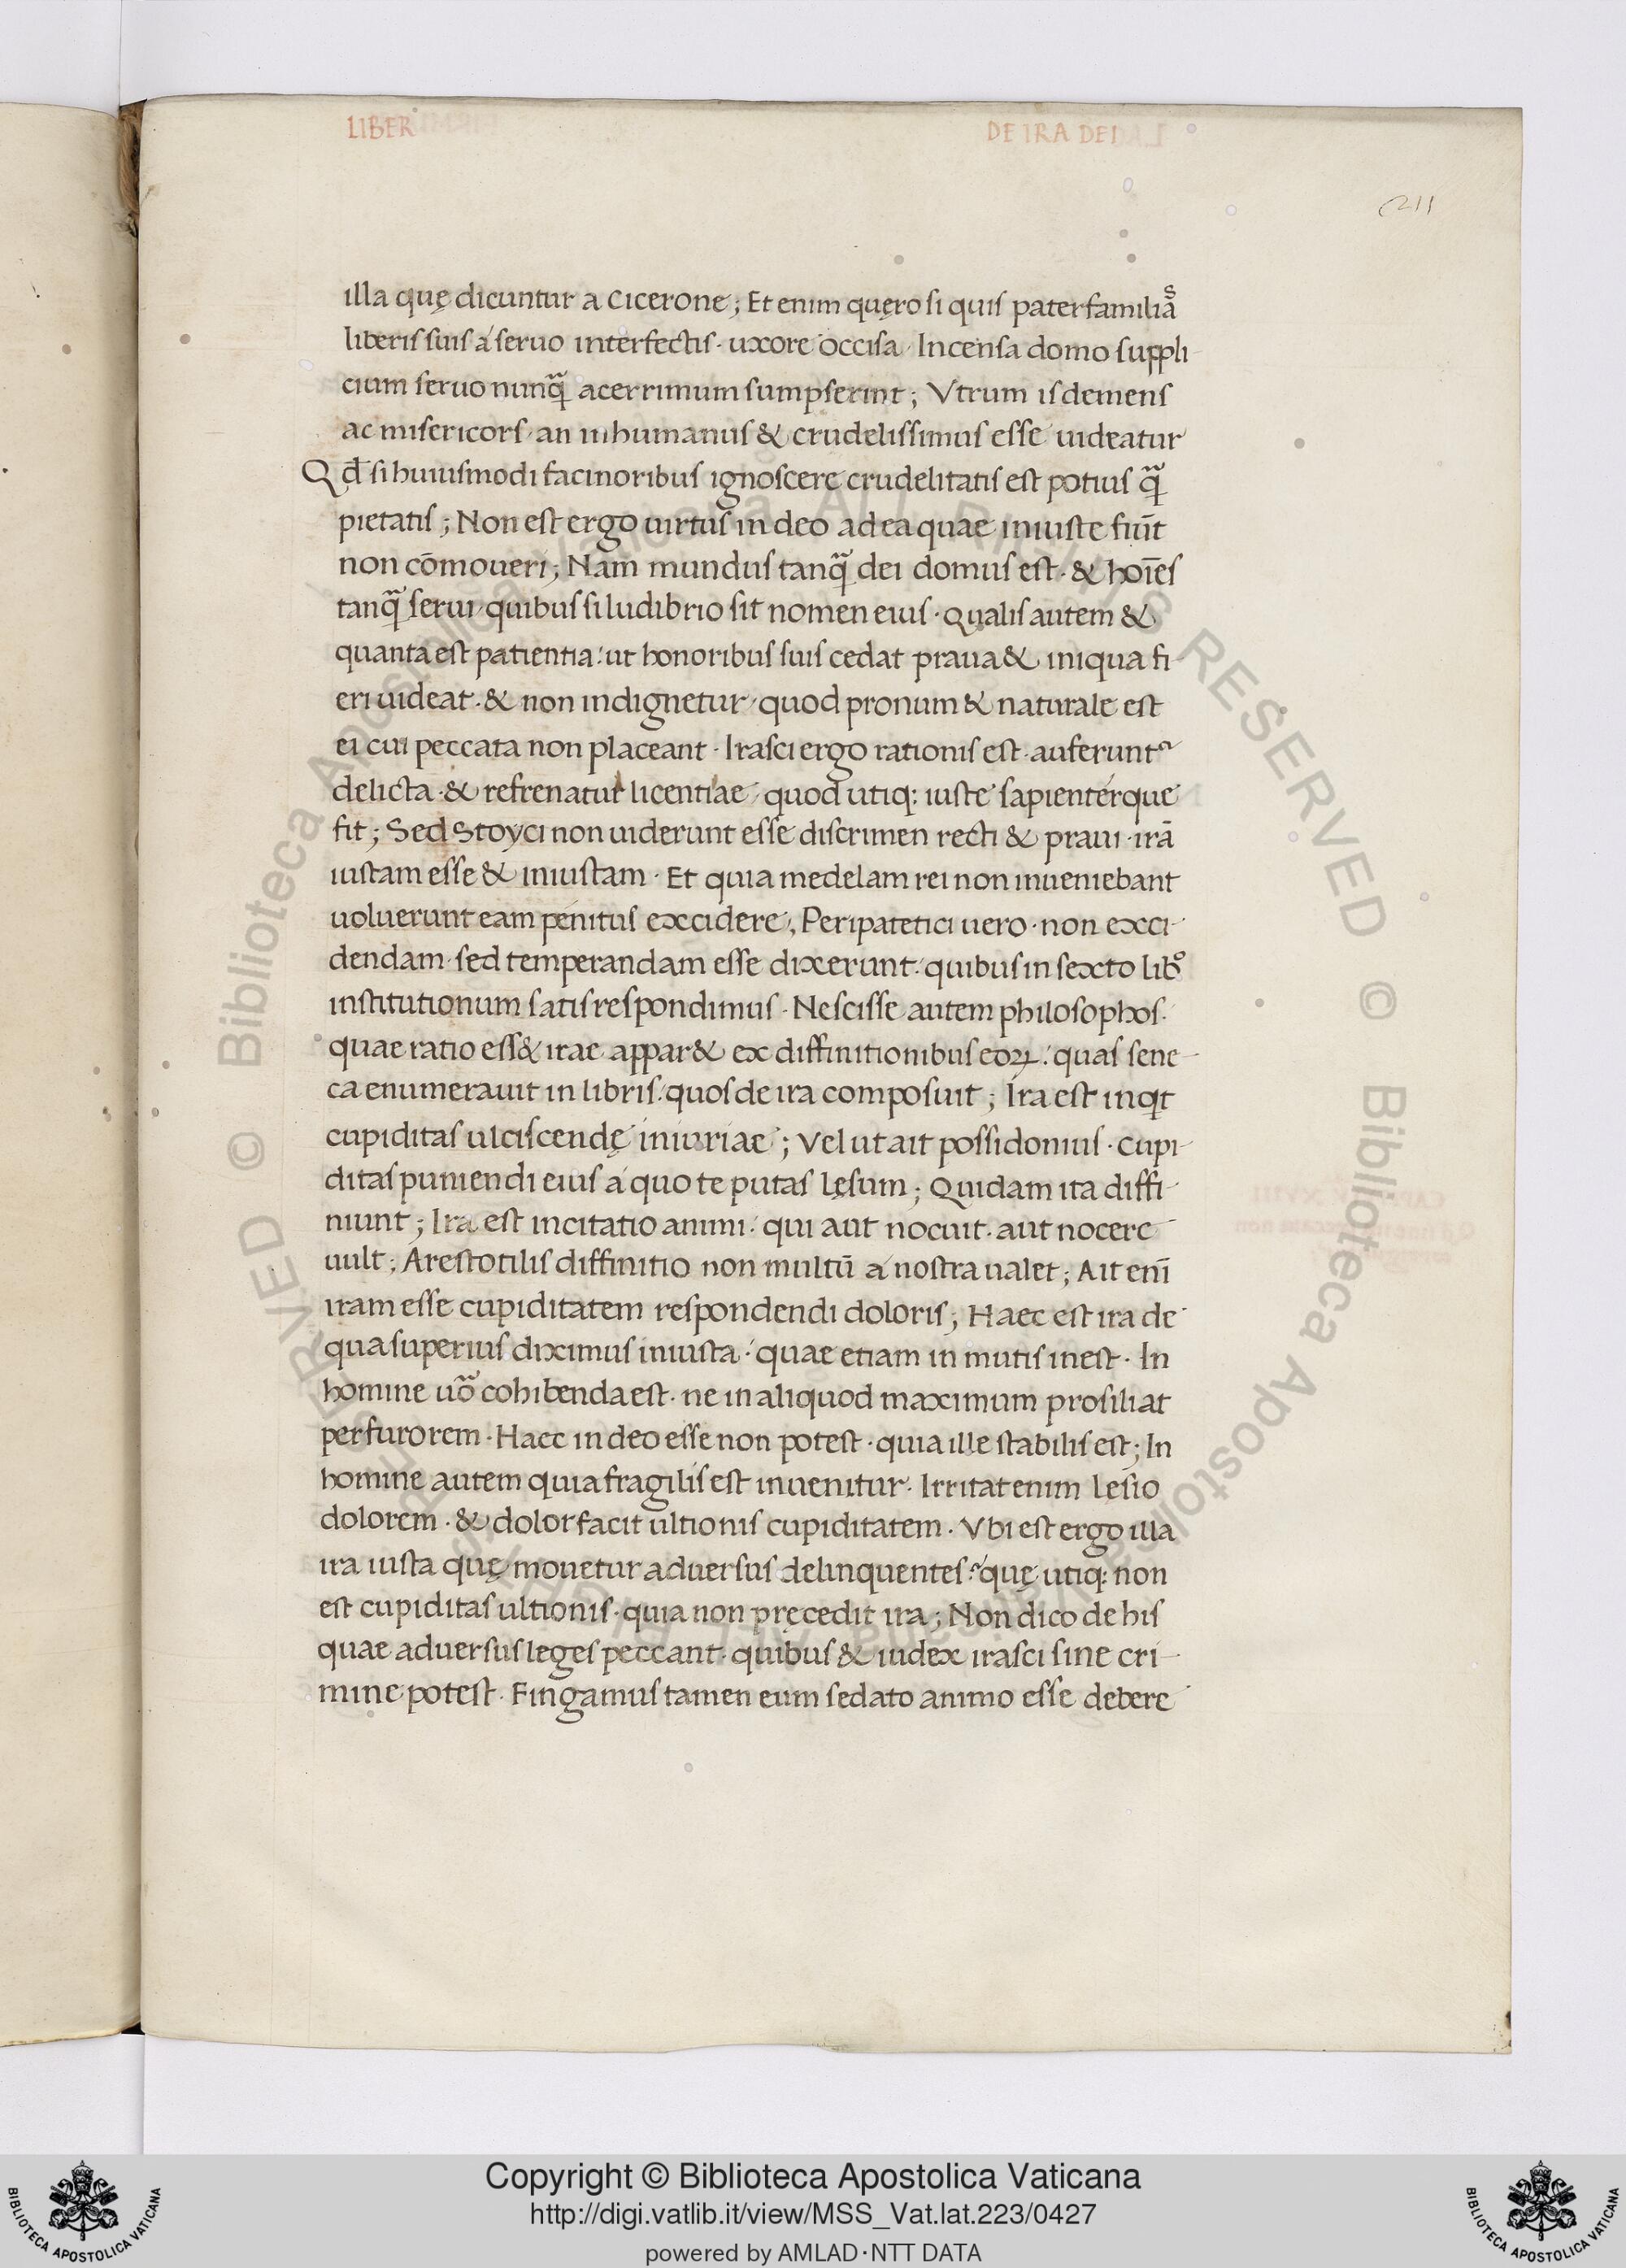 LIBER DE IRA DEI
211
illa quę dicuntur a Cicerone; Et enim quęro si quis pater familiaˢ
liberis suis á seruo interfectis· uxore occisa· Incensa domo suppli-
cium seruo nunq̃ acerrimum sumpserint; Vtrum is demens
ac misericors· an inhumanus & crudelissimus esse uideatur
Qd̄ si huiusmodi facinoribus ignoscere crudelitatis est potius q̃
pietatis; Non est ergo uirtus in deo ad ea quae iniuste fiūt
non cōmoueri; Nam mundus tanq̃ dei domus est· & hoīes
tanq̃ serui· quibus si ludibrio sit nomen eius· Qualis autem &
quanta est patientia: ut honoribus suis cedat praua & iniqua fi-
eri uideat· & non indignetur· quod pronum & naturale est
ei cui peccata non placeant· Irasci ergo rationis est· auferuntᷣ
delicta· & refrenatur licentiae· quod utiq: iuste sapientérque
fit; Sed Stoyci non uiderunt esse discrimen recti & praui· irā
iustam esse & iniustam· Et quia medelam rei non inueniebant
uoluerunt eam penitus excidere; Peripatetici uero· non exci-
dendam· sed temperandam esse dixerunt: quibus in sexto libº
institutionum satis respondimus· Nescisse autem philosophos·
quae ratio ess& irae appar& ex diffinitionibus eoꝝ: quas sene-
ca enumerauit in libris: quos de ira composuit; Ira est inqt
cupiditas ulciscendę iniuriae; Vel ut ait possidonius· Cupi-
ditas puniendi eius á quo te putas lęsum; Quidam ita diffi-
niunt; Ira est incitatio animi· qui aut nocuit· aut nocere
uult; Arestotilis diffinitio non multū á nostra ualet; Ait enī
iram esse cupiditatem respondendi doloris; Haec est ira de
qua superius diximus iniusta· quae etiam in mutis inest· In
homine uoᷓ cohibenda est· ne in aliquod maximum prosiliat
per furorem· Haec in deo esse non potest· quia ille stabilis est; In
homine autem quia fragilis est inuenitur· Irritat enim lesio
dolorem· & dolor facit ultionis cupiditatem· Vbi est ergo illa
ira iusta quę mouetur aduersus delinquentes? quę utiq: non
est cupiditas ultionis· quia non pręcedit ira; Non dico de his
quae aduersus leges peccant· quibus & iudex irasci sine cri-
mine potest· Fingamus tamen eum sedato animo esse debere
© Biblioteca Apostolica Vaticana ALL RIGHTS RESERVED © Biblioteca Apostolica Vaticana ALL RIGHTS RESERVED
BIBLIOTECA APOSTOLICA VATICANA
Copyright © Biblioteca Apostolica Vaticana
http://digi.vatlib.it/view/MSS_Vat.lat.223/0427
powered by AMLAD·NTT DATA
BIBLIOTECA APOSTOLICA VATICANA